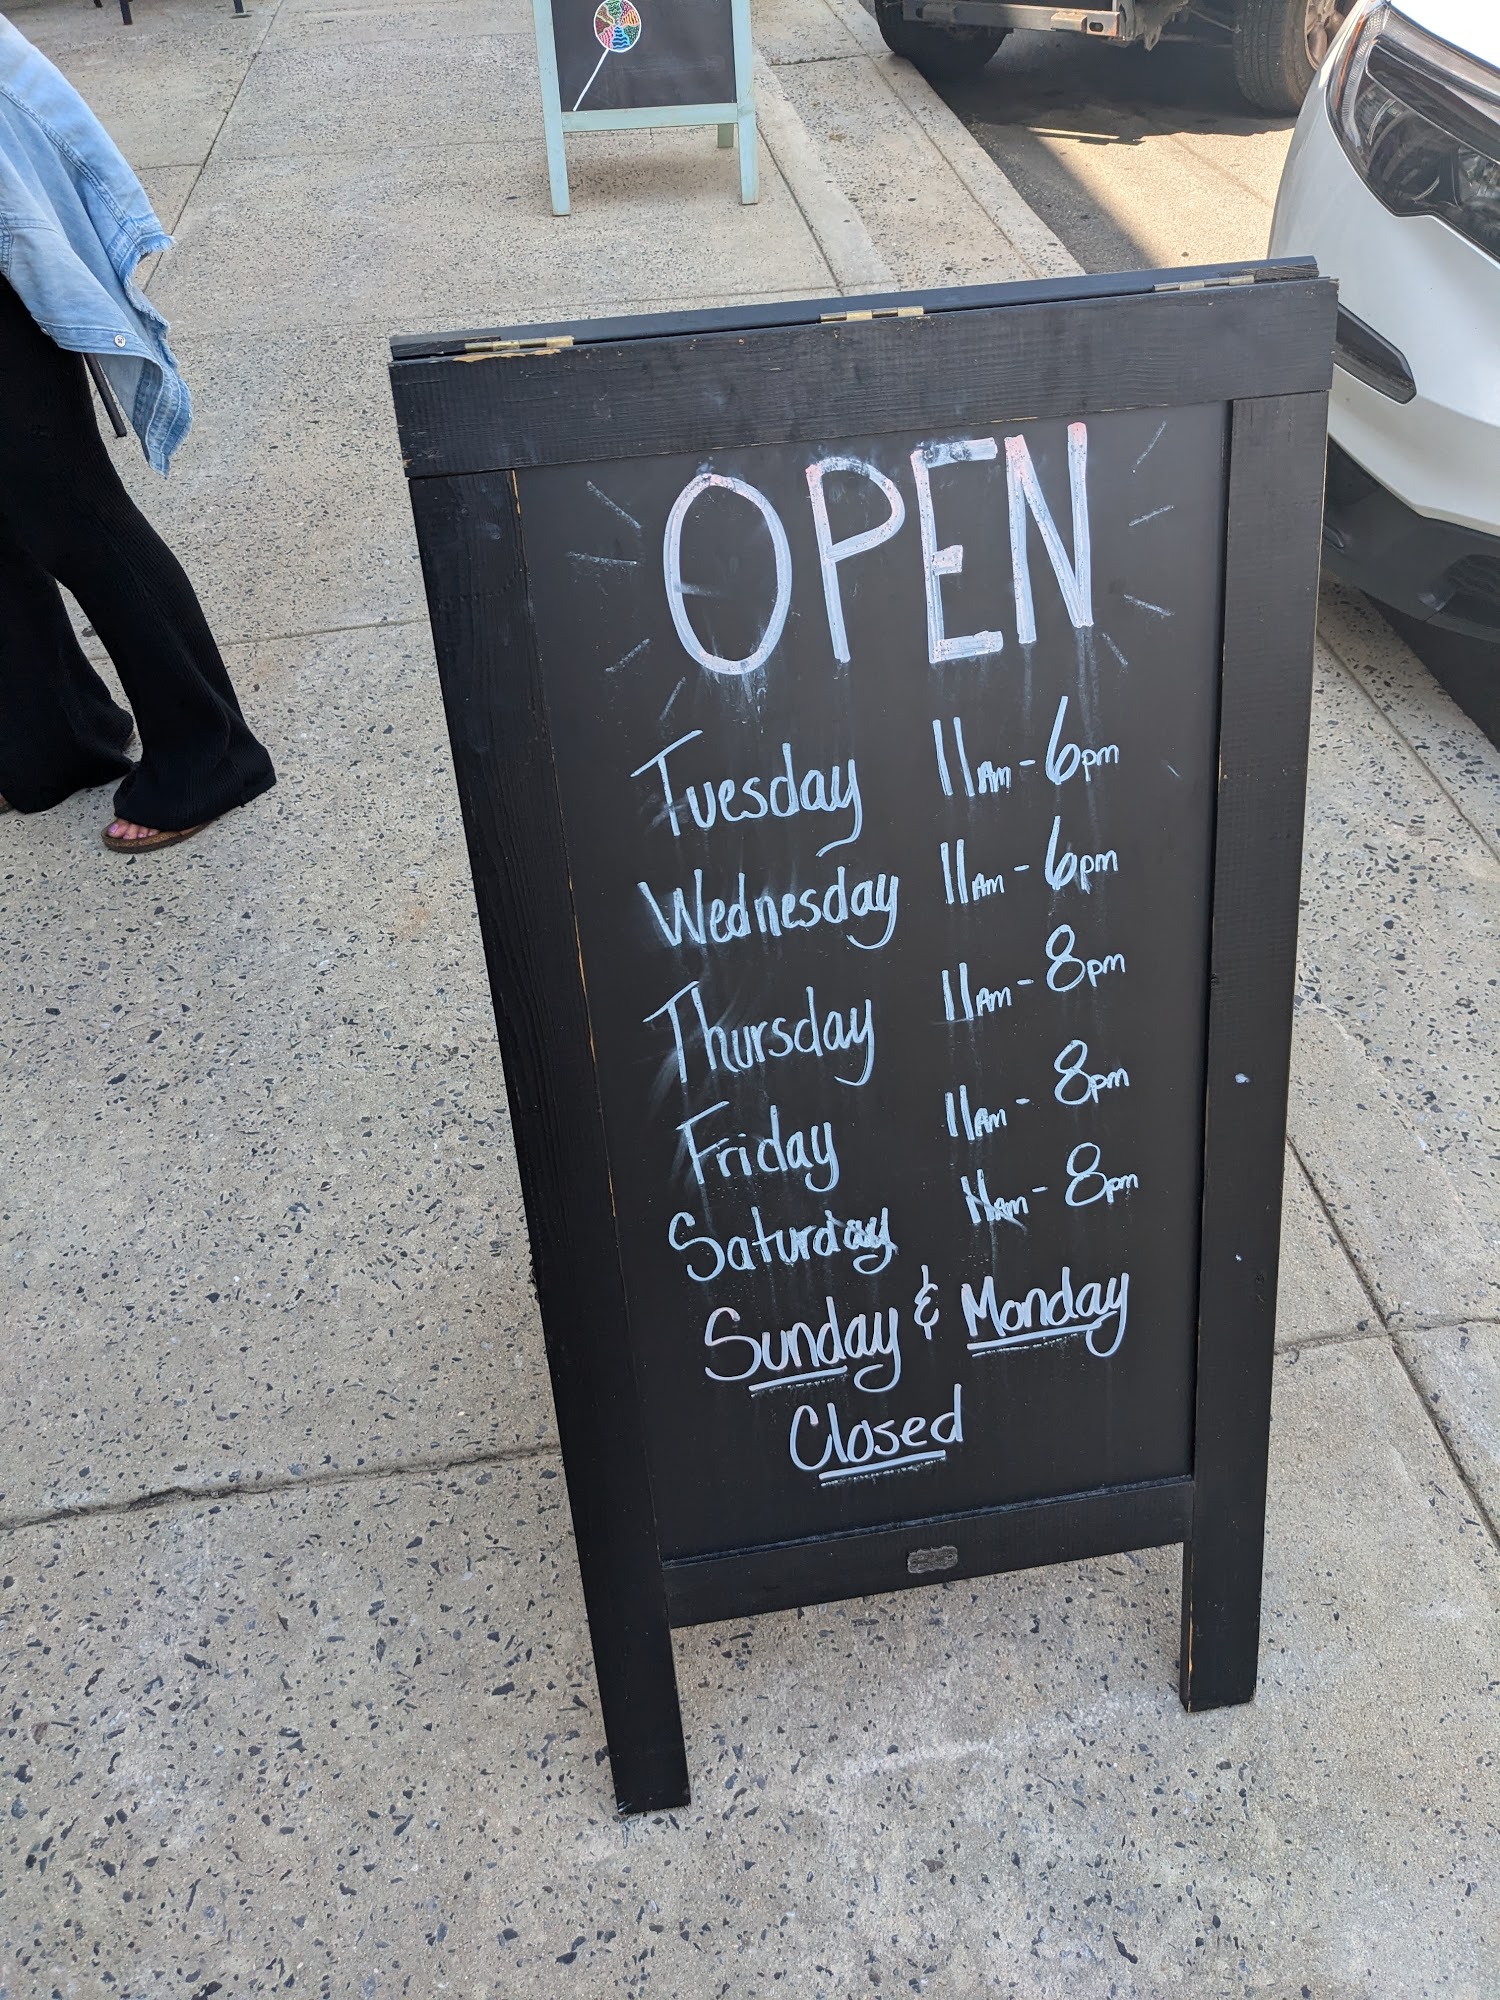 OPEN
Tuesday 11am - 6pm
Wednesday 11am - 6pm
Thursday 11am - 8pm
Friday 11am - 8pm
Saturday 11am - 8pm
Sunday & Monday
Closed